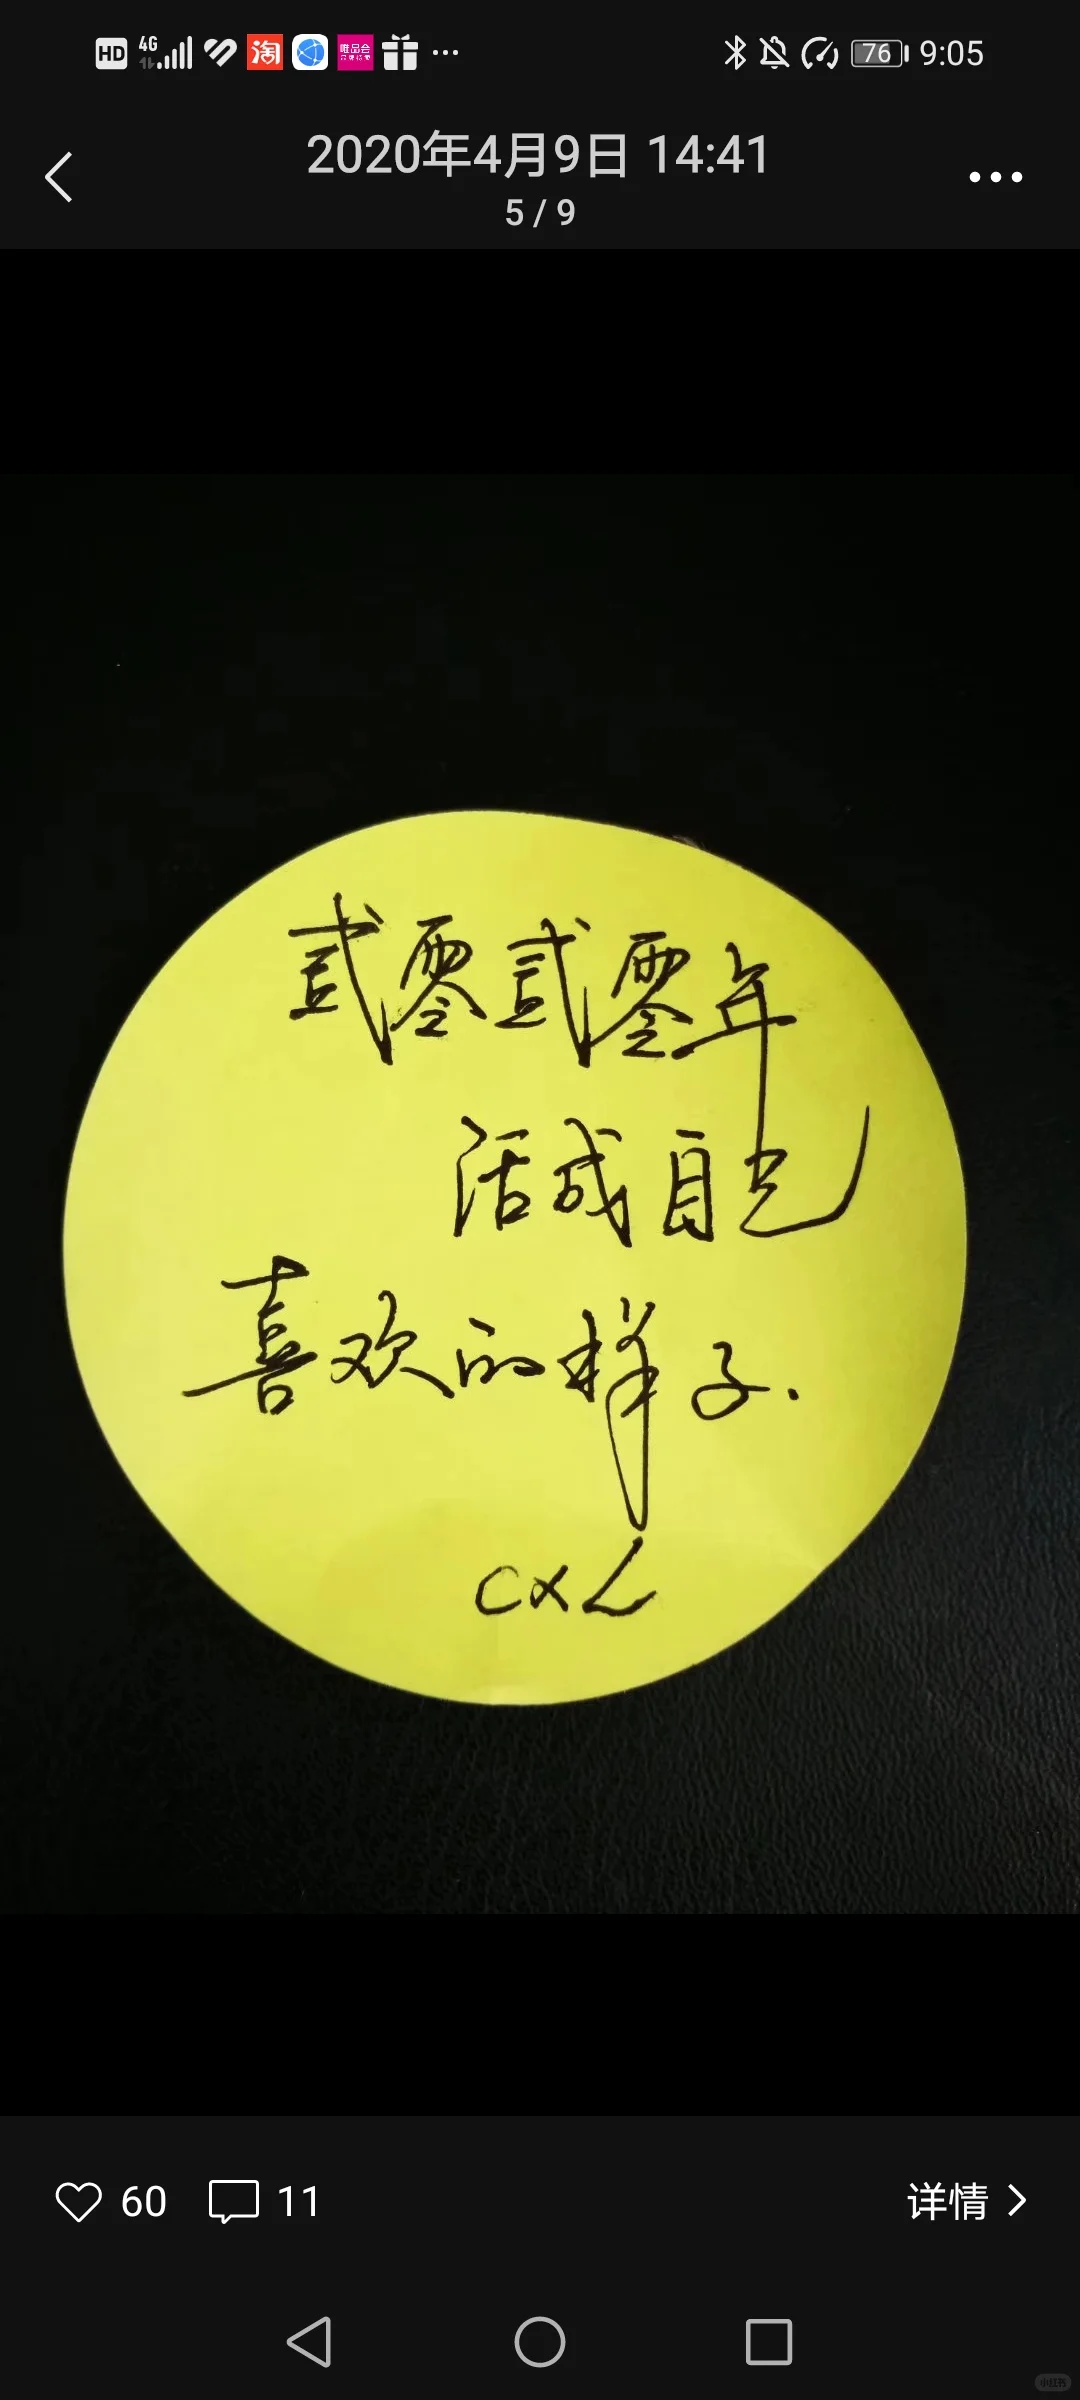 HD 4G 淘 唯品会 76 9:05
2020年4月9日 14:41
5 / 9
贰零贰零年
活成自己
喜欢的样子.
CXL
60 11 详情
小红书